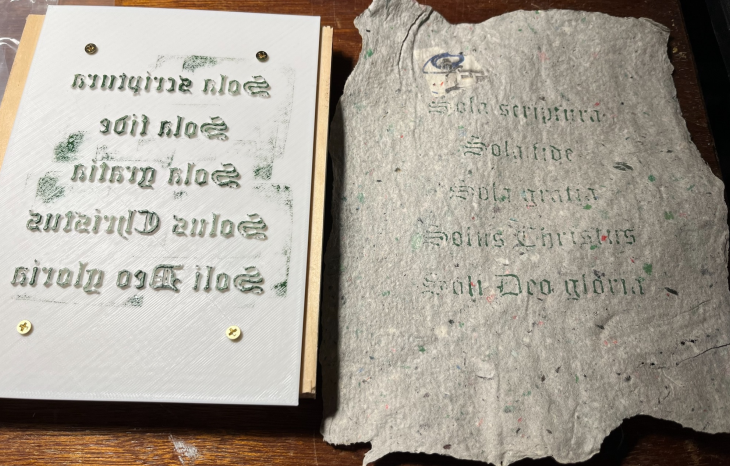 Sola scriptura
Sola fide
Sola gratia
Solus Christus
Soli Deo gloria
Sola scriptura
Sola fide
Sola gratia
Solus Christus
Soli Deo gloria